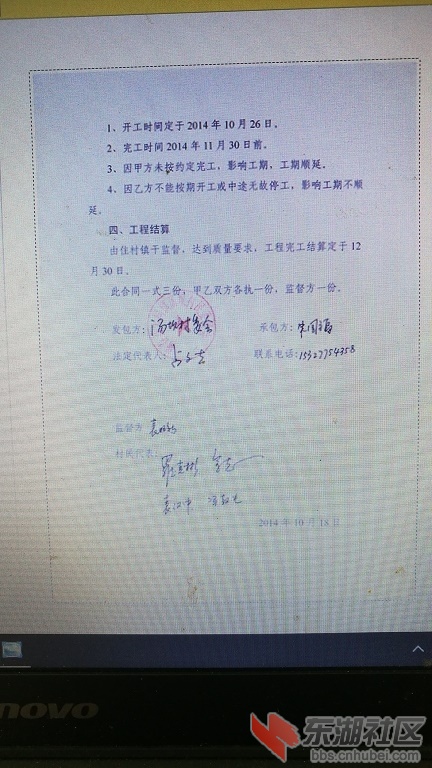 1、开工时间定于 2014 年 10 月 26 日。
2、完工时间 2014 年 11 月 30 日前。
3、因甲方未按约定完工，影响工期，工期顺延。
4、因乙方不能按期开工或中途无故停工，影响工期不顺
延。
四、工程结算
由住村镇干监督，达到质量要求，工程完工结算定于 12
月 30 日。
此合同一式三份，甲乙双方各执一份，监督方一份。
发包方： 村委会 承包方：
法定代表人： 联系电话：15327754358
监督方
村民代表：
2014 年 10 月 18 日
novo
东湖社区
bbs.cnhubei.com